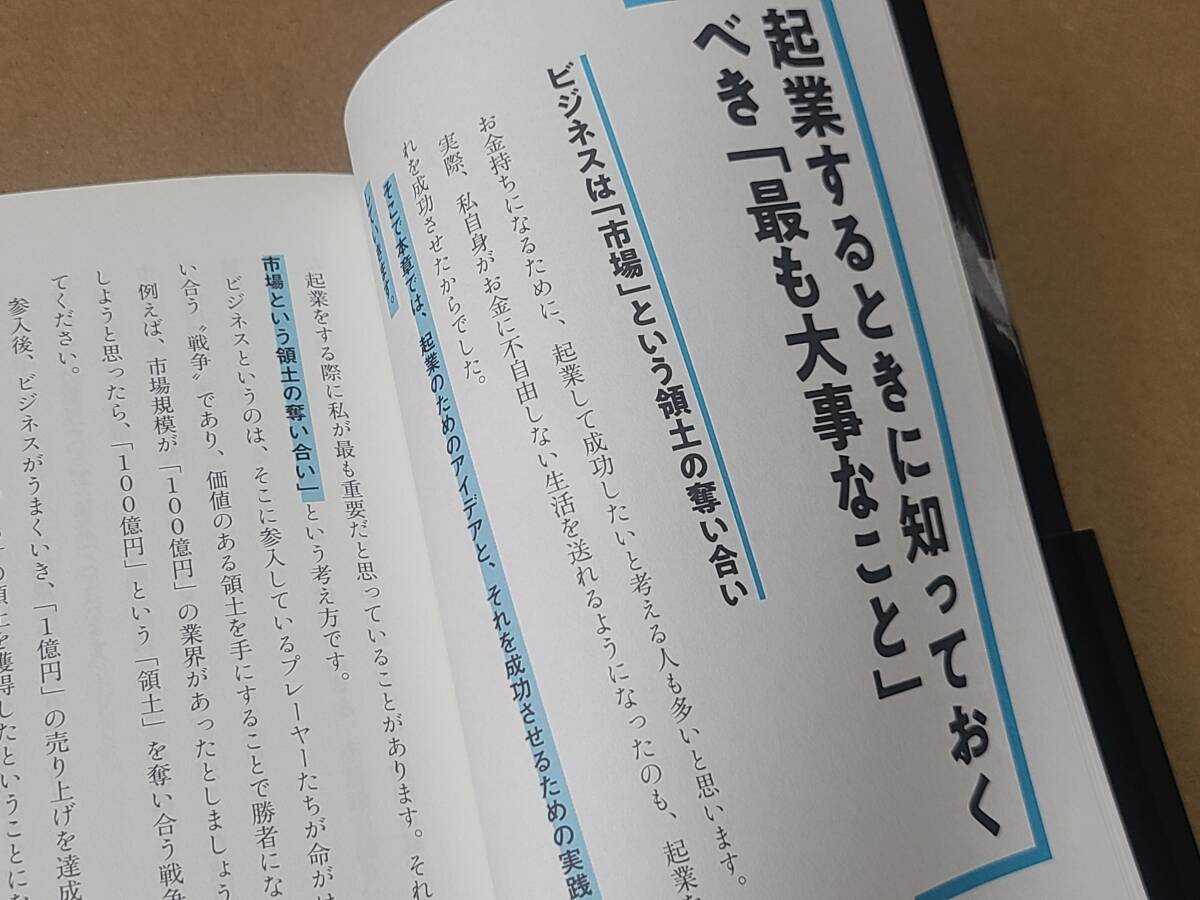 起業するときに知っておく
べき「最も大事なこと」
ビジネスは「市場」という領土の奪い合い
お金持ちになるために、起業して成功したいと考える人も多いと思います。
実際、私自身がお金に不自由しない生活を送れるようになったのも、起業
れを成功させたからでした。
そこで本章では、起業のためのアイデアと、それを成功させるための実践
していきます。
起業をする際に私が最も重要だと思っていることがあります。それ
市場という領土の奪い合い」という考え方です。
ビジネスというのは、そこに参入しているプレーヤーたちが命がけ
い合う〝戦争〟であり、価値のある領土を手にすることで勝者にな
例えば、市場規模が「100億円」の業界があったとしましょう
しようと思ったら、「100億円」という「領土」を奪い合う戦争
てください。
参入後、ビジネスがうまくいき、「1億円」の売り上げを達成
の領土を獲得したということにな